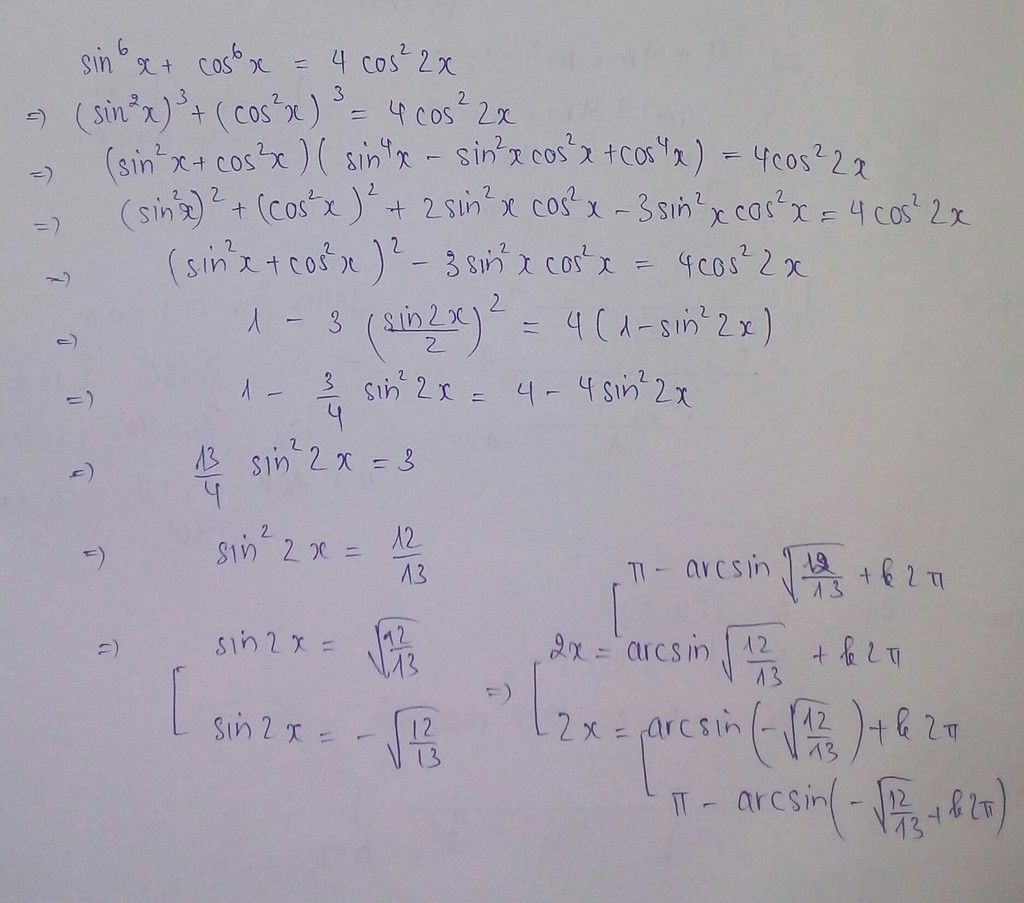 sin⁶x + cos⁶x = 4 cos²2x
=) (sin²x)³ + (cos²x)³ = 4cos²2x
=) (sin²x + cos²x)(sin⁴x - sin²x cos²x + cos⁴x) = 4cos²2x
=) (sin²x)² + (cos²x)² + 2sin²x cos²x - 3sin²x cos²x = 4cos²2x
=) (sin²x + cos²x)² - 3sin²x cos²x = 4cos²2x
=) 1 - 3 (sin2x/2)² = 4(1-sin²2x)
=) 1 - 3/4 sin²2x = 4 - 4sin²2x
=) 13/4 sin²2x = 3
=) sin²2x = 12/13
=) [ sin2x = √(12/13)
sin2x = -√(12/13)
=) [ π - arcsin √(12/13) + k2π
2x = arcsin √(12/13) + k2π
2x = arcsin(-√(12/13)) + k2π
π - arcsin(-√(12/13) + k2π)